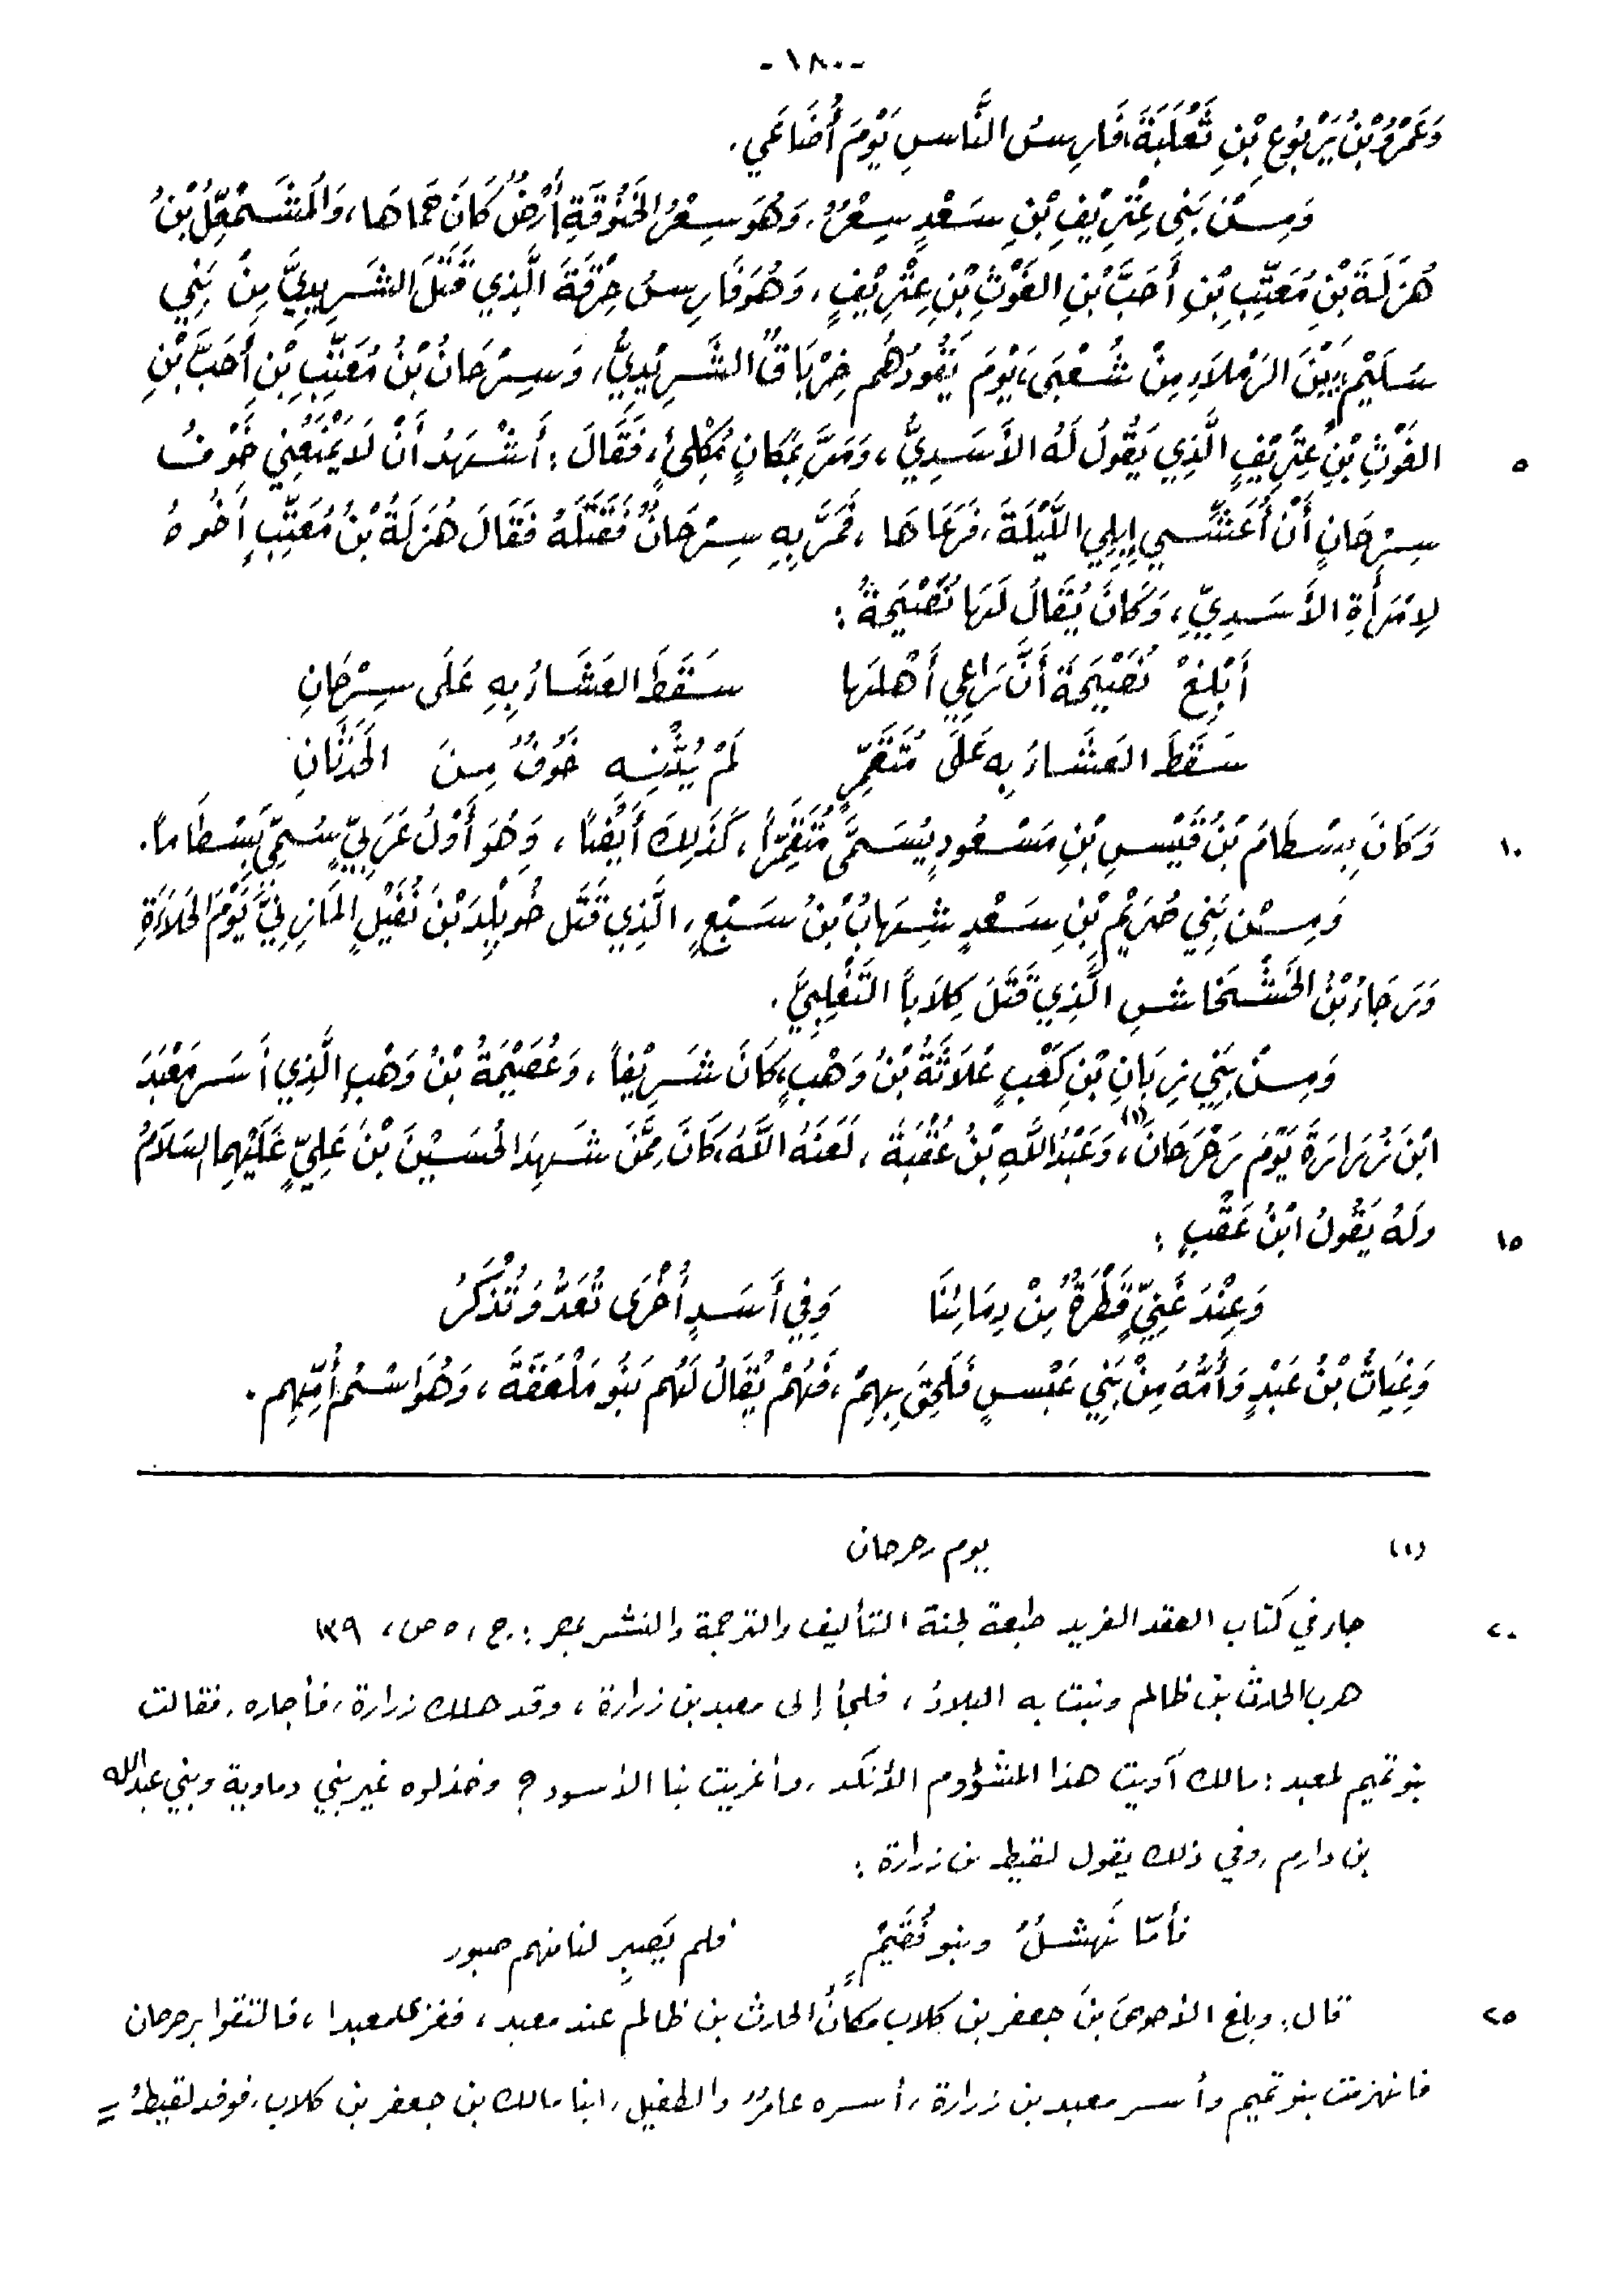 -١٨٠-
وَعَمْرُو بْنُ يَرْبُوعِ بْنِ ثَعْلَبَةَ، فَارِسُ النَّاسِ يَوْمَ أُضَاعَي.
وَمِنْ بَنِي عِتْرِيْفِ بْنِ سَعْدٍ سِعْرٌ، وَهُوَ سِعْرُ الخَنُوقَةِ أَرْضٌ كَانَ حَمَاهَا، وَالمُشْمَعِلُّ بْنُ
هُزَلَةَ بْنِ مُعَتِّبِ بْنِ أَحَبَّ بْنِ الغَوْثِ بْنِ عِتْرِيْفٍ، وَهُوَ فَارِسُ حِرْقَةَ الَّذِي قَتَلَ الشَّرِيدِيَّ مِنْ بَنِي
سُلَيْمٍ، بَيْنَ الرَّمْلاَءِ مِنْ شُعْبَى، يَوْمَ يَقُودُهُم خِرْبَاقٌ الشَّرِيْدِيُّ، وَسِرْحَانُ بْنُ مُعَتِّبِ بْنِ أَحَبَّ بْنِ
٥ الغَوْثِ بْنِ عِتْرِيْفٍ الَّذِي يَقُولُ لَهُ الأَسَدِيُّ، وَمَرَّ بِمَكَانٍ مُكْلِئٍ، فَقَالَ: أَشْهَدُ أَنْ لَا يَمْنَعُنِي خَوْفُ
سِرْحَانٍ أَنْ أُعَشِّي إِبِلِي اللَّيْلَةَ، فَرَعَاهَا، فَمَرَّ بِهِ سِرْحَانٌ فَقَتَلَهُ فَقَالَ هُزَلَةُ بْنُ مُعَتِّبٍ أَخُوهُ
لِامْرَأَةِ الأَسَدِيِّ، وَكَانَ يُقَالُ لَهَا نُصَيْحَةُ:
أَبْلِغْ نُصَيْحَةَ أَنَّ رَاعِي أَهْلِهَا سَقَطَ العَشَاءُ بِهِ عَلَى سِرْحَانِ
سَقَطَ العَشَاءُ بِهِ عَلَى مُتَقَمِّرٍ لَمْ يُثْنِهِ خَوْفٌ مِنَ الحَدَثَانِ
١٠ وَكَانَ بِسْطَامُ بْنُ قَيْسِ بْنِ مَسْعُودٍ يُسَمَّى مُتَقَمِّرًا، كَذَلِكَ أَيْضًا، وَهُوَ أَوَّلُ عَرَبِيٍّ سُمِّيَ بِسْطَاماً.
وَمِنْ بَنِي صُرَيْمِ بْنِ سَعْدٍ شِهَابُ بْنُ سَبْعٍ، الَّذِي قَتَل خُوَيْلِدَ بْنَ نُفَيْلٍ المَازِنِيَّ يَوْمَ الحَلَاءَةِ
وَرَجَاءُ بْنُ الخَشْخَاشِ الَّذِي قَتَلَ كِلَاباً التَّغْلِبِيَّ.
وَمِنْ بَنِي زِبَانِ بْنِ كَعْبٍ عُلَاثَةُ بْنُ وَهْبٍ، كَانَ شَرِيْفاً، وَعُصَيْمَةُ بْنُ وَهْبٍ الَّذِي أَسَر مَعْبَدَ
ابْنَ زُرَارَةَ يَوْمَ رَحْرَحَانَ (١)، وَعَبْدُ اللَّهِ بْنُ عُقْبَةَ، لَعَنَهُ اللَّهُ، كَانَ مِمَّنْ شَهِدَ الحُسَيْنَ بْنَ عَلِيٍّ عَلَيْهِمَا السَّلَامُ
١٥ ولَهُ يَقُولُ ابْنُ عَقْبٍ:
وَعِنْدَ غَنِيٍّ قَطْرَةٌ مِنْ دِمَائِنَا وَفِي أَسَدٍ أُخْرَى تُعَدُّ وَتُذْكَرُ
وَغِيَاثُ بْنُ عَبْدٍ وَأُمُّهُ مِنْ بَنِي عَبْسٍ فَلَحِقَ بِهِمْ، فَهُمْ يُقَالُ لَهُم بَنُو مَلْعَقَةَ، وَهُوَ اسْمُ أُمِّهِم.
(١) يوم رحرحان
٢٠ جاء في كتاب العقد الفريد طبعة لجنة التأليف والترجمة والنشر بمصر: ج، ٥ ص، ١٣٩
هرب الحارث بن ظالم ونبت به البلاد، فلجأ إلى معبد بن زرارة، وقد هلك زرارة، فأجاره، فقالت
بنو تميم لمعبد: مالك آويت هذا المشؤوم الأنكد، وأغريت بنا الأسود؟ وخذلوه غير بني دماوية وبني عبدالله
بن دارم، وفي ذلك يقول لقيط بن زرارة:
فأمّا نَهشلٌ وبنو فُقَيْمٍ فلم يَصبِر لنا منهم صبور
٢٥ قال: وبلغ الأحوصَ بنَ جعفر بن كلاب مكانُ الحارث بن ظالم عند معبد، فغزى معبدا، فالتقوا برحرحان
فانهزمت بنو تميم وأسر معبد بن زرارة، أسره عامرٌ والطفيل، ابنا مالك بن جعفر بن كلاب، فوفد لقيطُ =